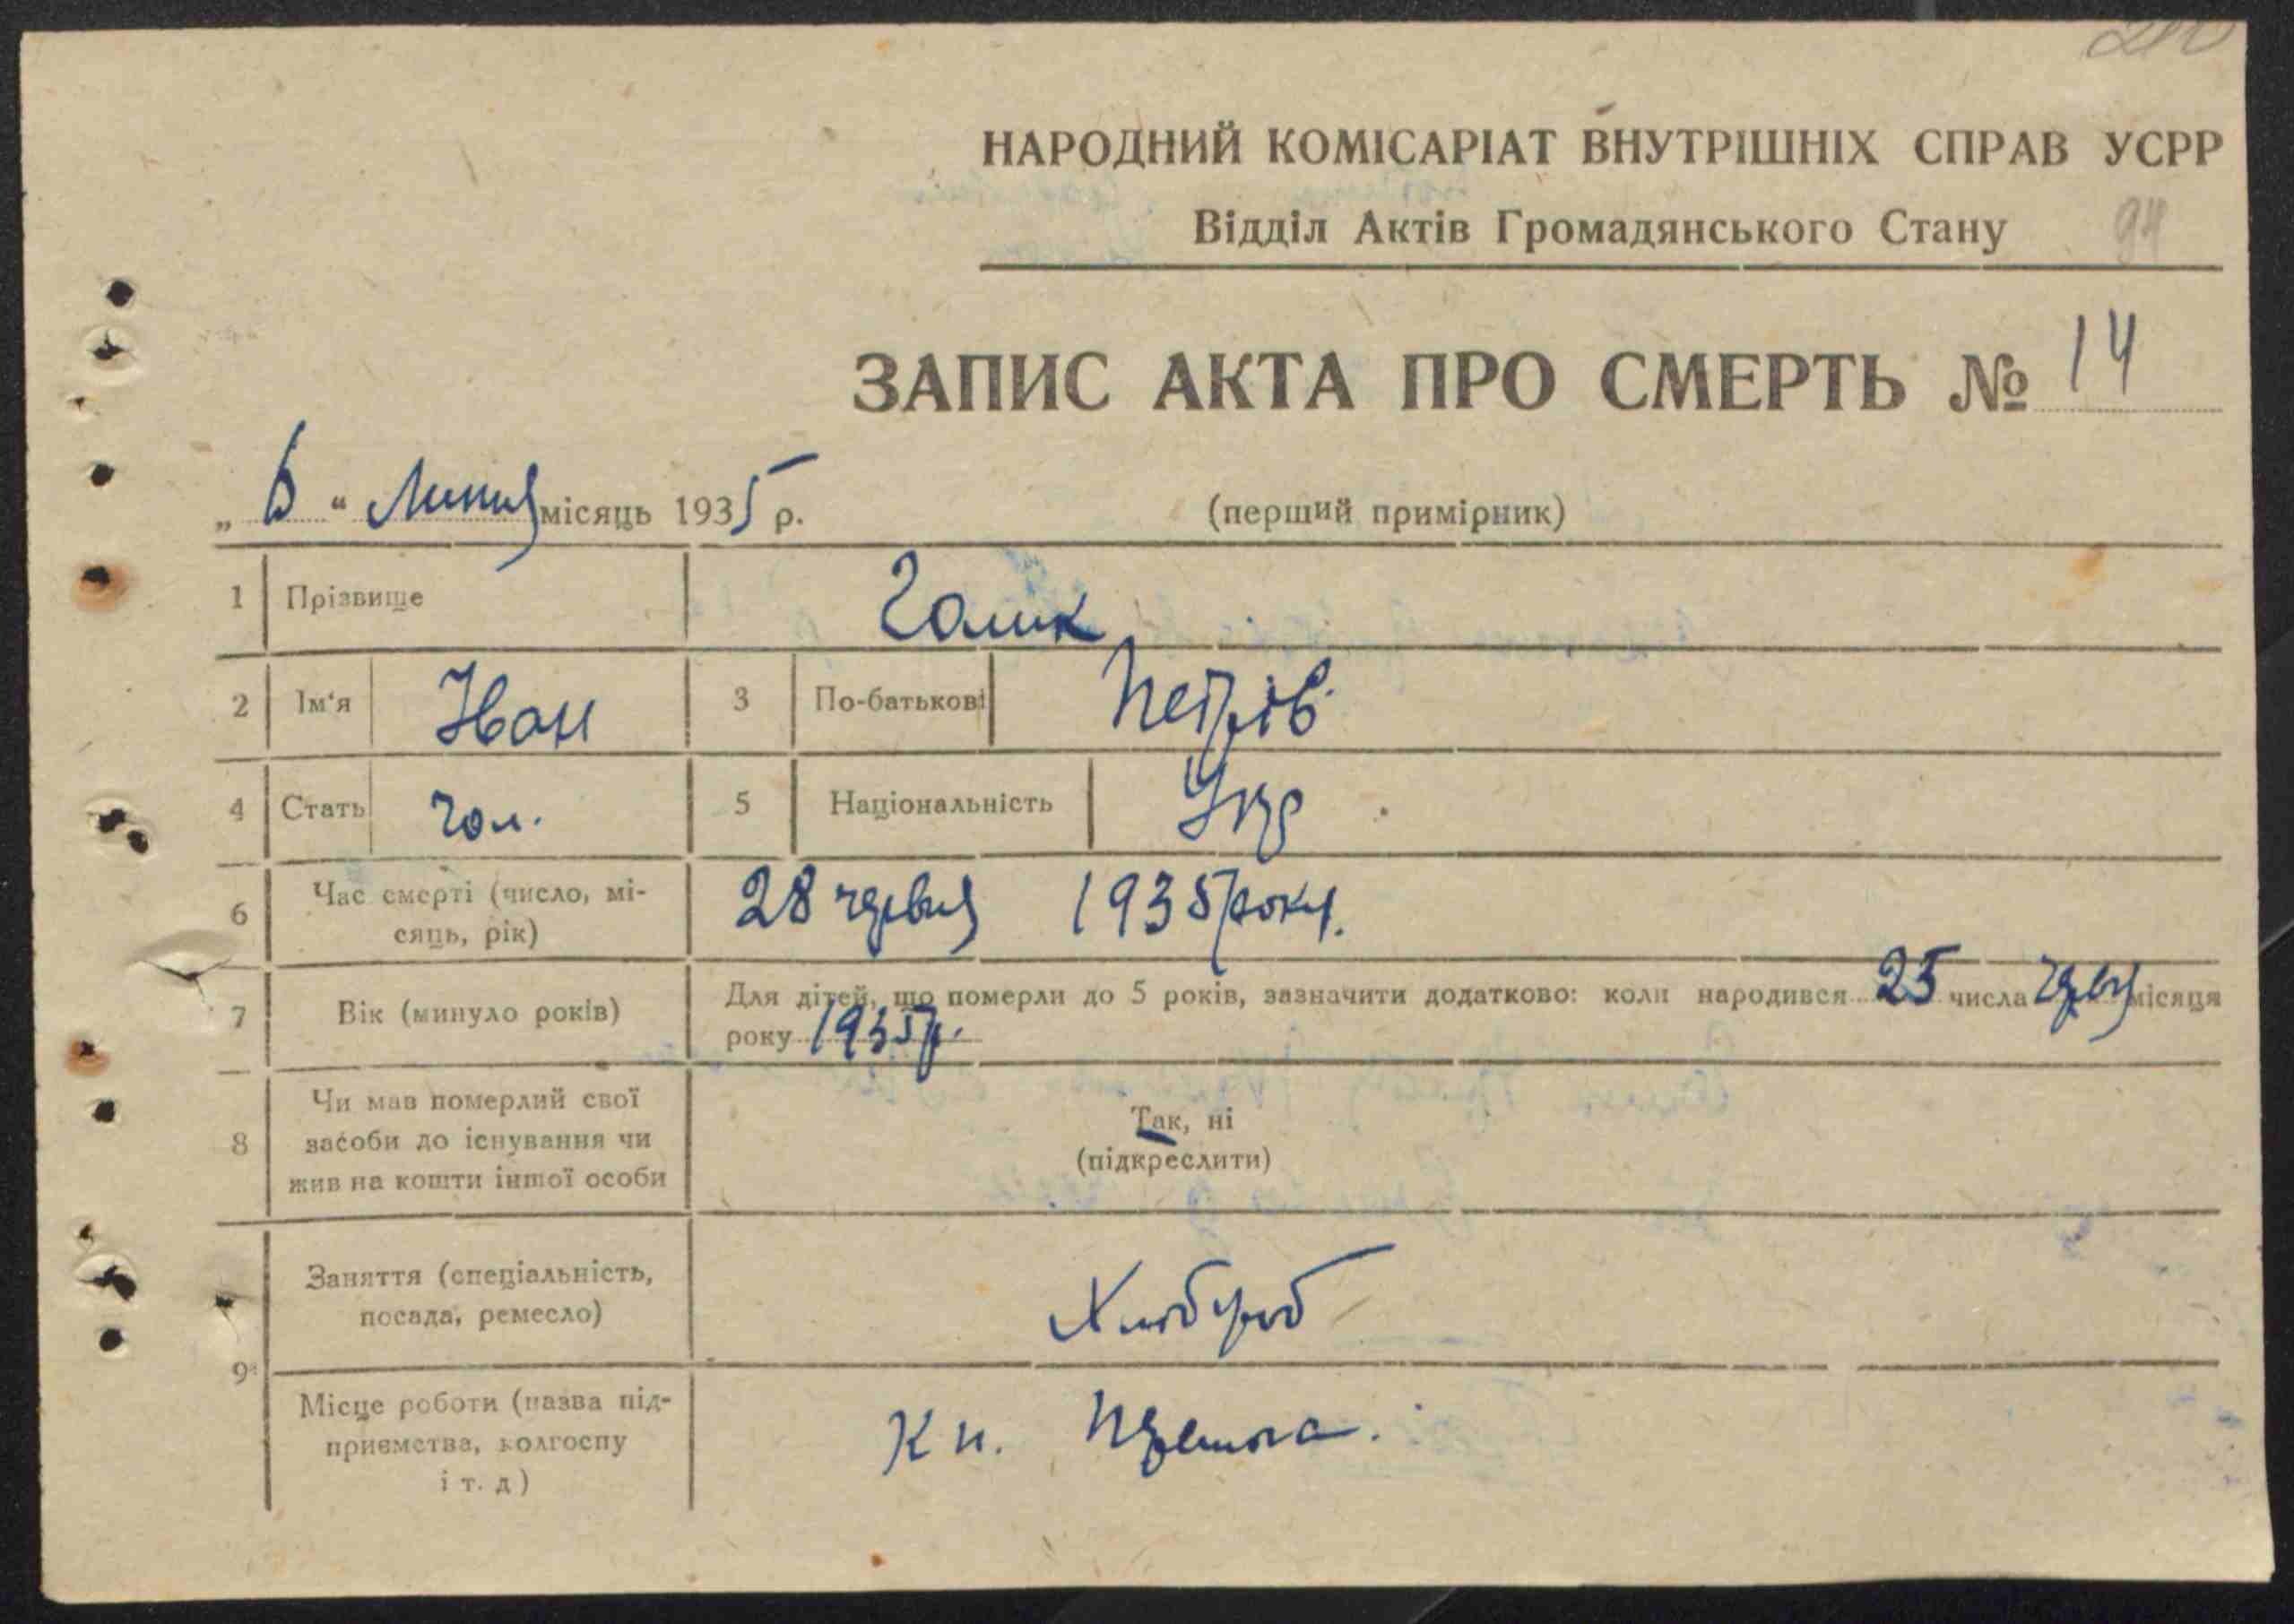 200
НАРОДНИЙ КОМІСАРІАТ ВНУТРІШНІХ СПРАВ УСРР
Відділ Актів Громадянського Стану 94
ЗАПИС АКТА ПРО СМЕРТЬ № 14
„ 6 “ Липня місяць 1935 р. (перший примірник)
1 Прізвище Голик
2 Ім‘я Іван 3 По-батькові Петрів
4 Стать чол. 5 Національність Укр
6 Час смерті (число, мі-
сяць, рік) 28 червня 1935 року.
7 Вік (минуло років) Для дітей, що померли до 5 років, зазначити додатково: коли народився 25 числа червня місяця
року 1935 р.
8 Чи мав померлий свої
засоби до існування чи
жив на кошти іншої особи
Так, ні
(підкреслити)
9 Заняття (спеціальність,
посада, ремесло) Хлібороб
Місце роботи (назва під-
приємства, колгоспу
і т. д)